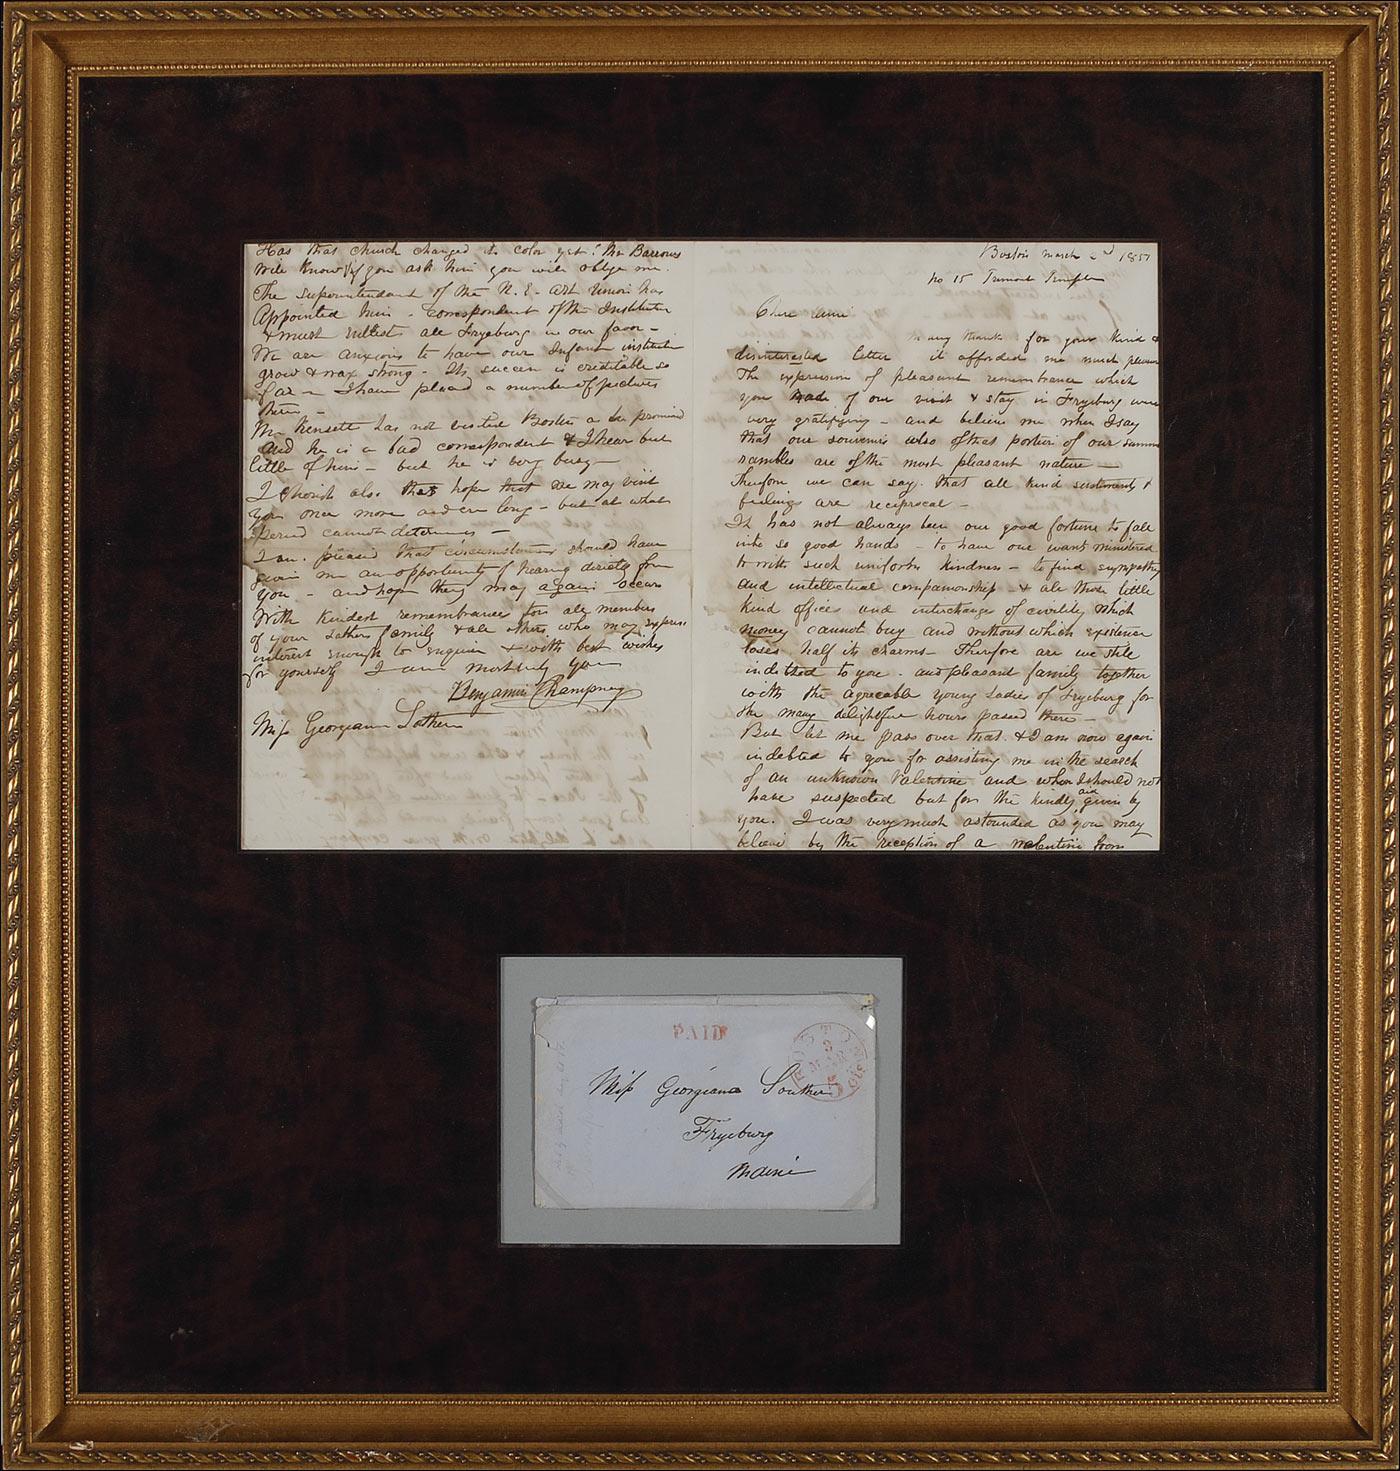 Boston March 2d 1851
No 15 Tremont Temple
Chere Amie
Many thanks for your kind &
disinterested letter it afforded me much pleasure
The expression of pleasant remembrance which
you made of our visit & stay in Fryeburg were
very gratifying - and believe me when I say
that our souvenirs also of that portion of our summer
rambles are of the most pleasant nature -
Therefore we can say that all kind sentiments &
feelings are reciprocal -
It has not always been our good fortune to fall
into so good hands - to have our wants ministered
to with such uniform kindness - to find sympathy
and intellectual companionship - & all those little
kind offices and interchanges of civility which
money cannot buy and without which existence
loses half its charms - Therefore are we still
indebted to you - and pleasant family together
with the agreeable young Ladies of Fryeburg for
the many delightful hours passed there -
But let me pass over that & I am now again
indebted to you for assisting me in the search
of an unknown Valentine and whom I should not
have suspected but for the kindly aid given by
you. I was very much astounded as you may
believe by the reception of a valentine from
Has that church changed its color yet? Mr Barrows
will know if you ask him you will oblige me.
The Superintendant of the N. E. Art Union has
appointed him - Correspondent of the Institution
& must enlist all Fryeburg in our favor -
We are anxious to have our Infant institution
grow & wax strong - Its success is creditable so
far - I have placed a number of pictures
there -
Mr Kensett has not visited Boston as he promised
and he is a bad correspondent & I hear but
little of him - but he is very busy -
I cherish also the hope that we may visit
you once more and ere long - but at what
period cannot determine -
I am pleased that circumstances should have
given me an opportunity of hearing directly from
you - and hope they may again occur
With kindest remembrances for all members
of your Fathers family & all others who may express
interest enough to enquire & with best wishes
for yourself I am most truly yours
Benjamin Champney
Miss Georgiann Sothern
PAID
BOSTON
3
MAR
Miss Georgiana Souther
Fryeburg
Maine